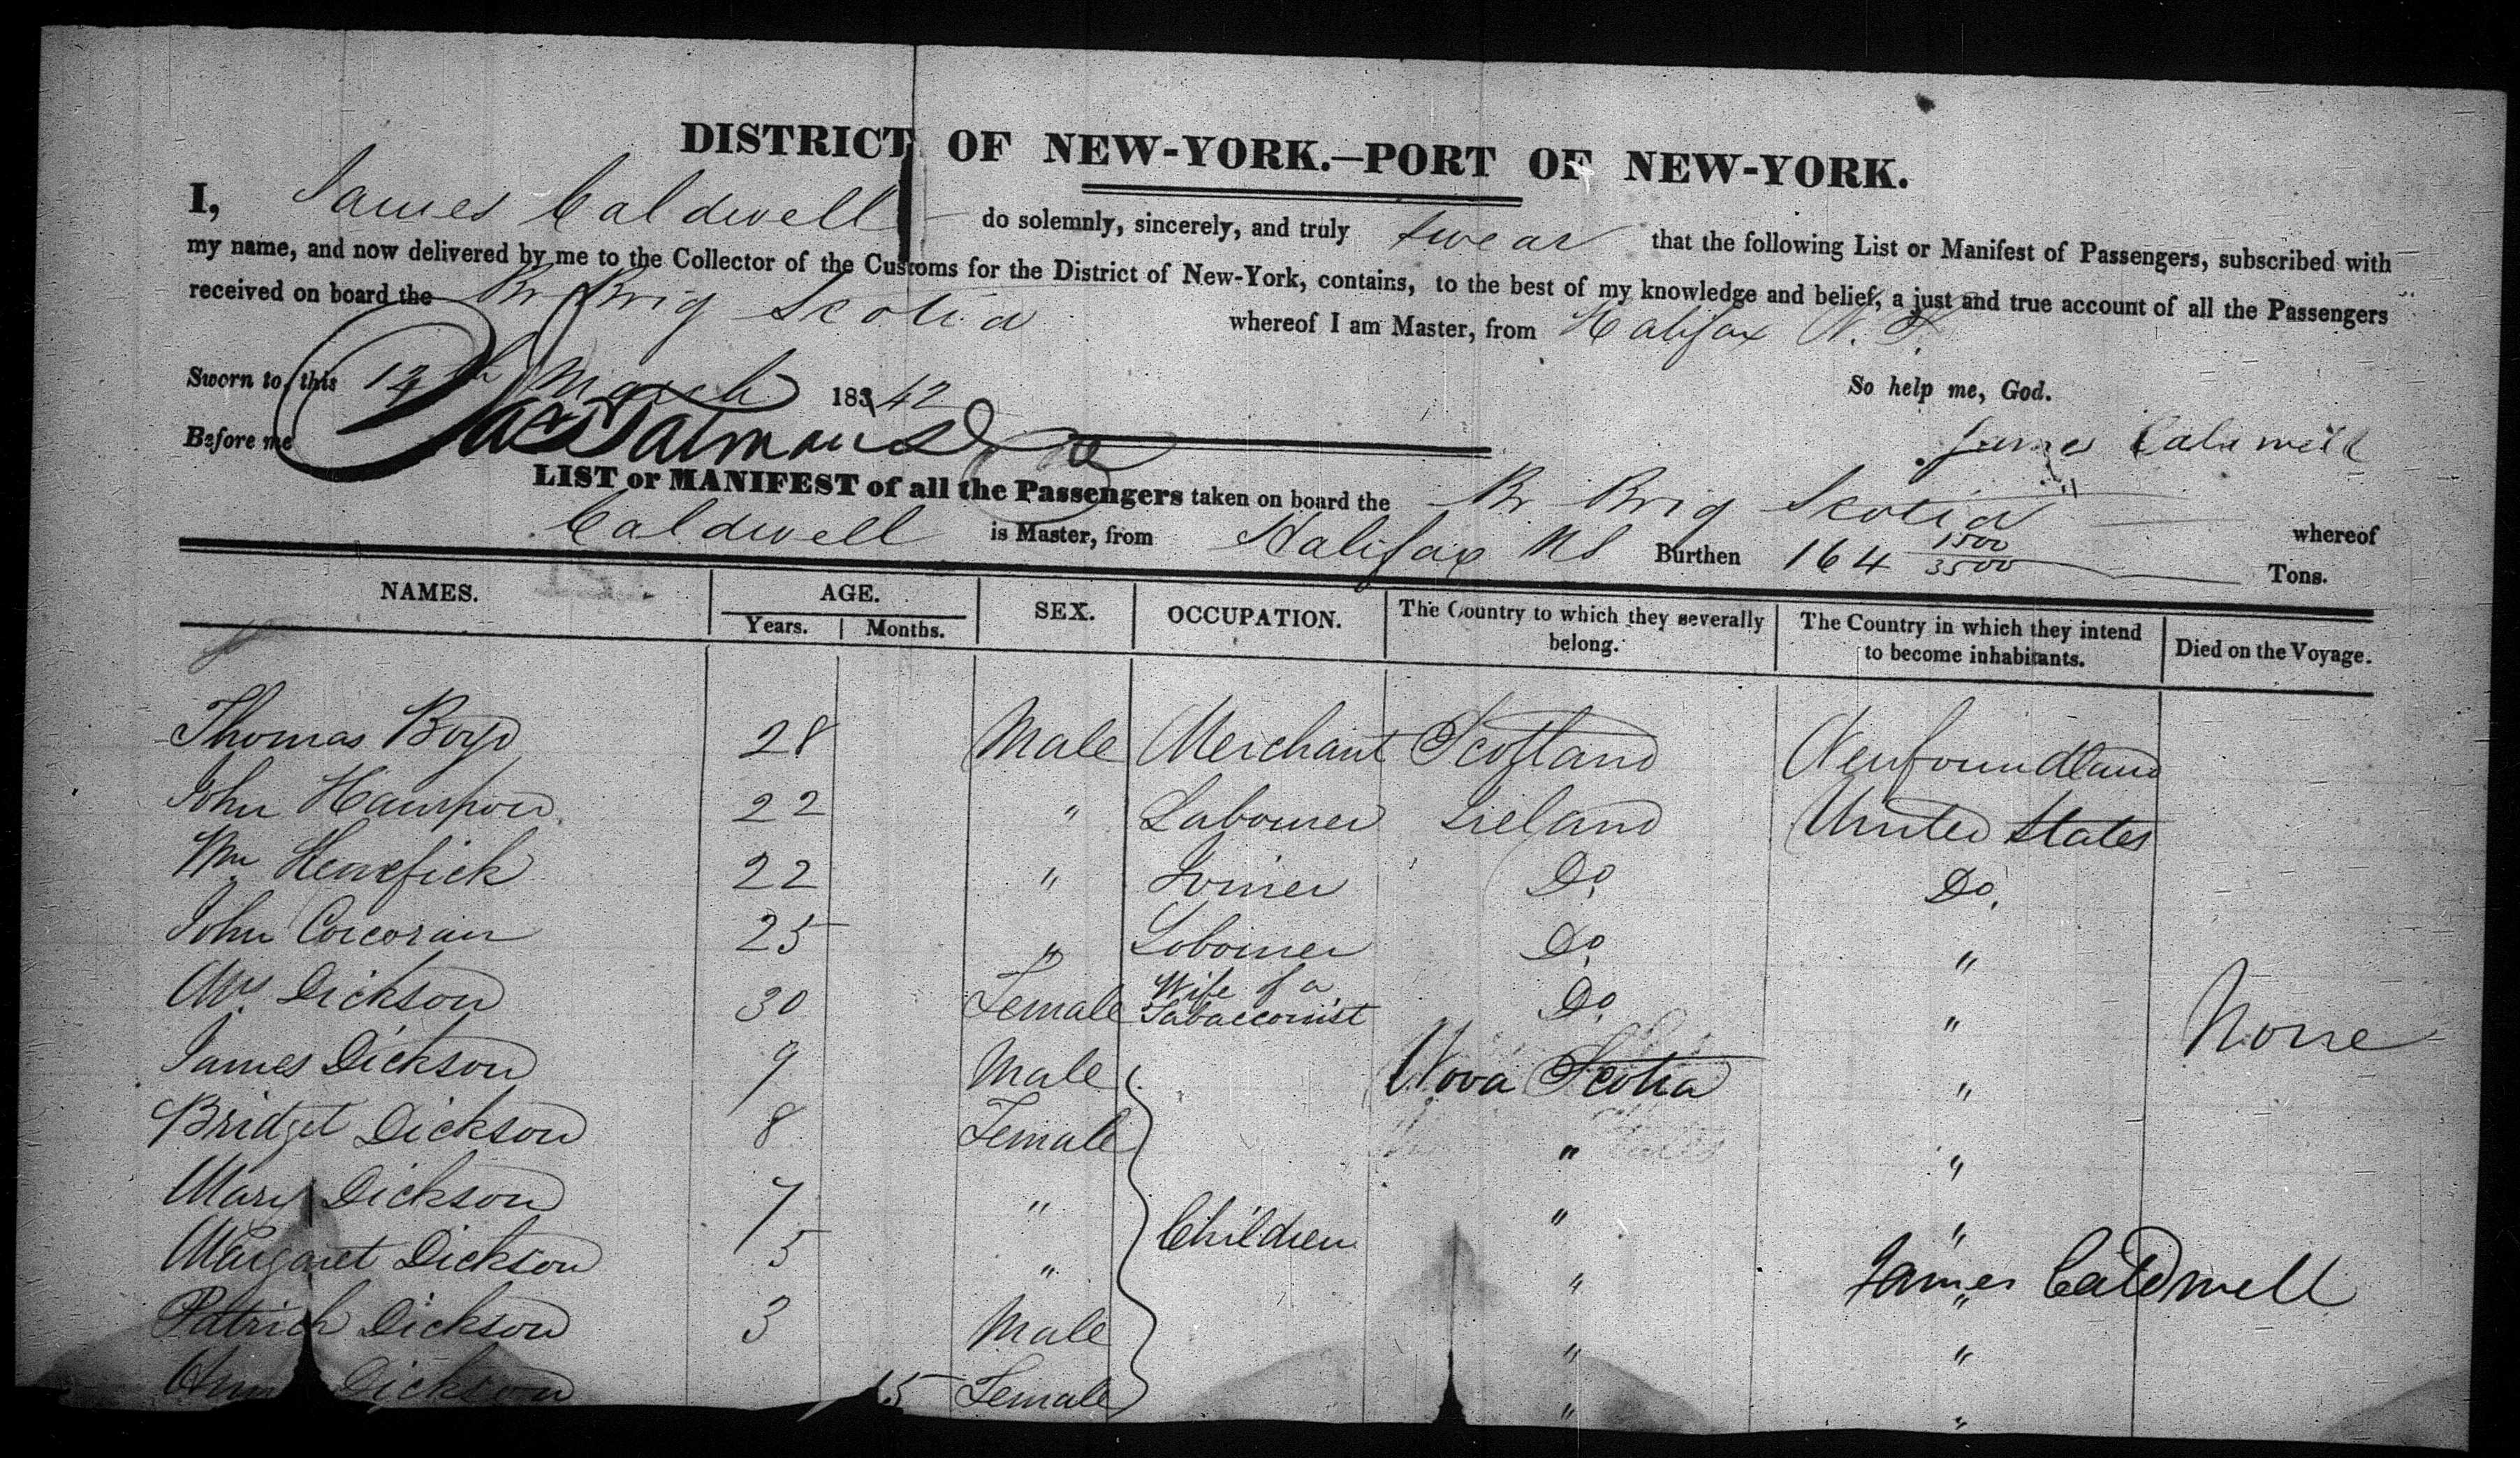 DISTRICT OF NEW-YORK.—PORT OF NEW-YORK.
I, James Caldwell do solemnly, sincerely, and truly swear that the following List or Manifest of Passengers, subscribed with
my name, and now delivered by me to the Collector of the Customs for the District of New-York, contains, to the best of my knowledge and belief, a just and true account of all the Passengers
received on board the Br Brig Scotia whereof I am Master, from Halifax N. S.
Sworn to, this 12th March 18342 So help me, God.
Before me James Caldwell
LIST or MANIFEST of all the Passengers taken on board the Br Brig Scotia whereof
Caldwell is Master, from Halifax NS Burthen 164 1500/3500 Tons.
NAMES. AGE. SEX. OCCUPATION. The Country to which they severally belong. The Country in which they intend to become inhabitants. Died on the Voyage.
Years. Months.
Thomas Boyd 28 Male Merchant Scotland Newfoundland
John 22 " Labourer Ireland United States
Wm Henefick 22 " Joiner Do. Do.
John Corcoran 25 " Labourer Do. "
Mrs Dickson 30 Female Wife of a Tabacconist Do. " None
James Dickson 9 Male Nova Scotia "
Bridget Dickson 8 Female " "
Mary Dickson 7 " Children " "
Margaret Dickson 5 " " " James Caldwell
Patrick Dickson 3 Male " "
Dickson 5 Female " "